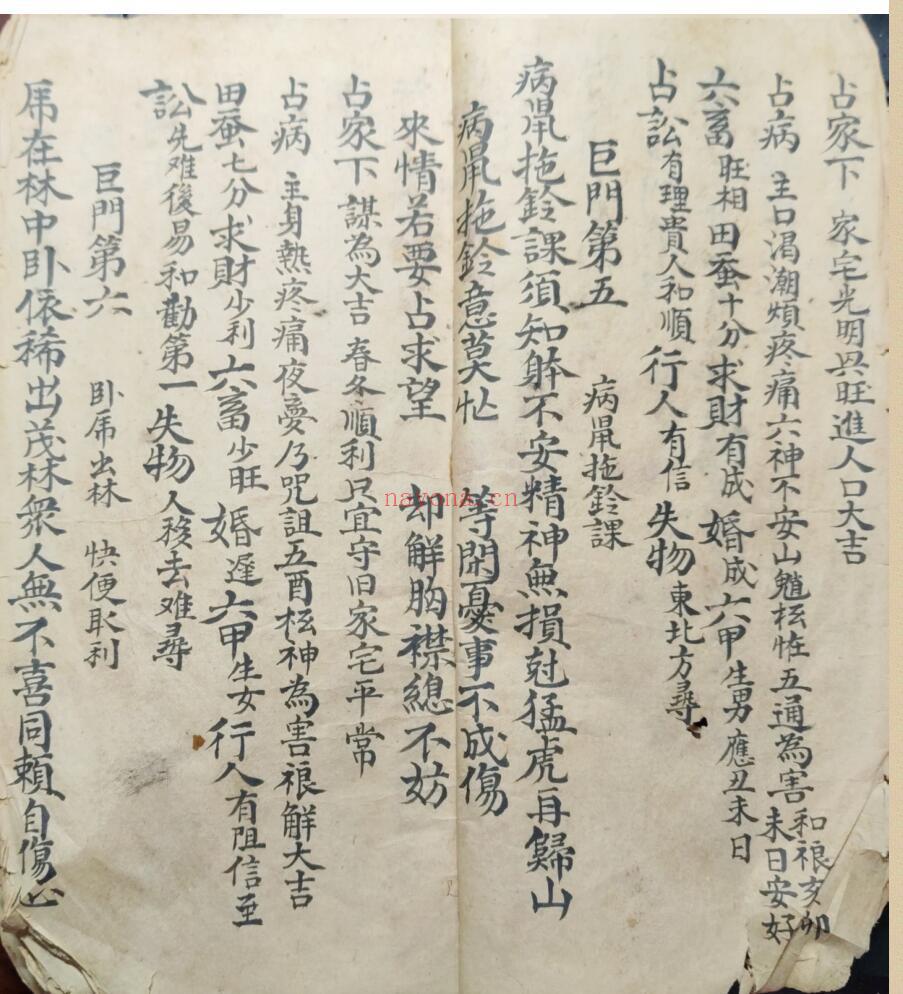 占家下 家宅光明興旺進人口大吉
占病 主口渴潮煩疼痛六神不安山魈枉怪五通為害和禳亥卯未日安好
六畜旺相田蚕十分求財有成婚成六甲生男應丑未日
占訟有理貴人和順行人有信失物東北方尋
巨門第五 病鼠拖鈴課
病鼠拖鈴課須知躰不安精神無損尅猛虎再歸山
病鼠拖鈴意莫忙 等閑憂事不成傷
來情若要占求望 却解胸襟總不妨
占家下 謀為大吉春冬順利只宜守旧家宅平常
占病 主身熱疼痛夜夢乃咒詛五酉枉神為害禳解大吉
田蚕七分求財少利六畜少旺婚遲六甲生女行人有阻信至
訟先难後易和勸第一失物人移去难尋
巨門第六 卧乕出林 快便取利
乕在林中卧依稀出茂林衆人無不喜同賴自傷心
nayona.cn